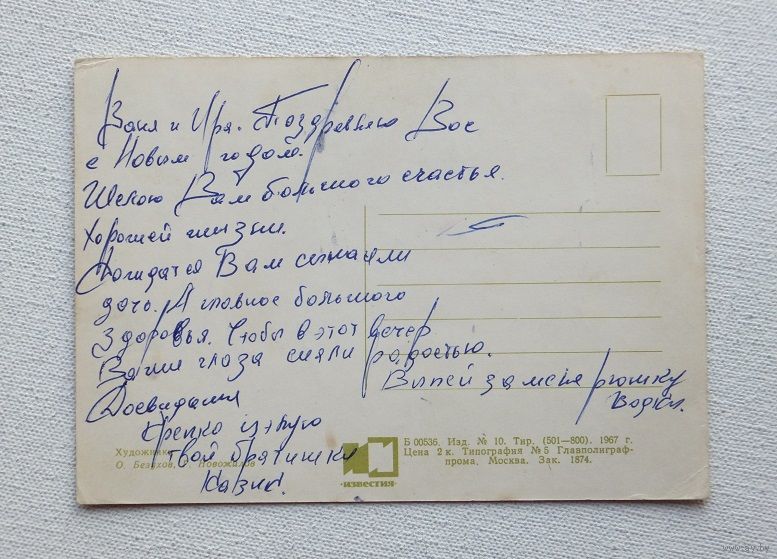 Ваня и Ира. Поздравляю Вас
с Новым годом.
Шекаю Вам большого счастья.
Хорошей жизни.
Дажидатся Вам сына или
доч. А главное большого
здоровья. Чтобы в этот вечер
Ваши глаза сияли радостью.
Выпей за меня рюмку
водки.
Досвидания
крепко цэлую
твой братишка
Казик.
Художники
О. Безухов, Новожилов
ИЗВЕСТИЯ
Б 00536. Изд. № 10. Тир. (501—800). 1967 г.
Цена 2 к. Типография № 5 Главполиграф-
прома, Москва. Зак. 1874.